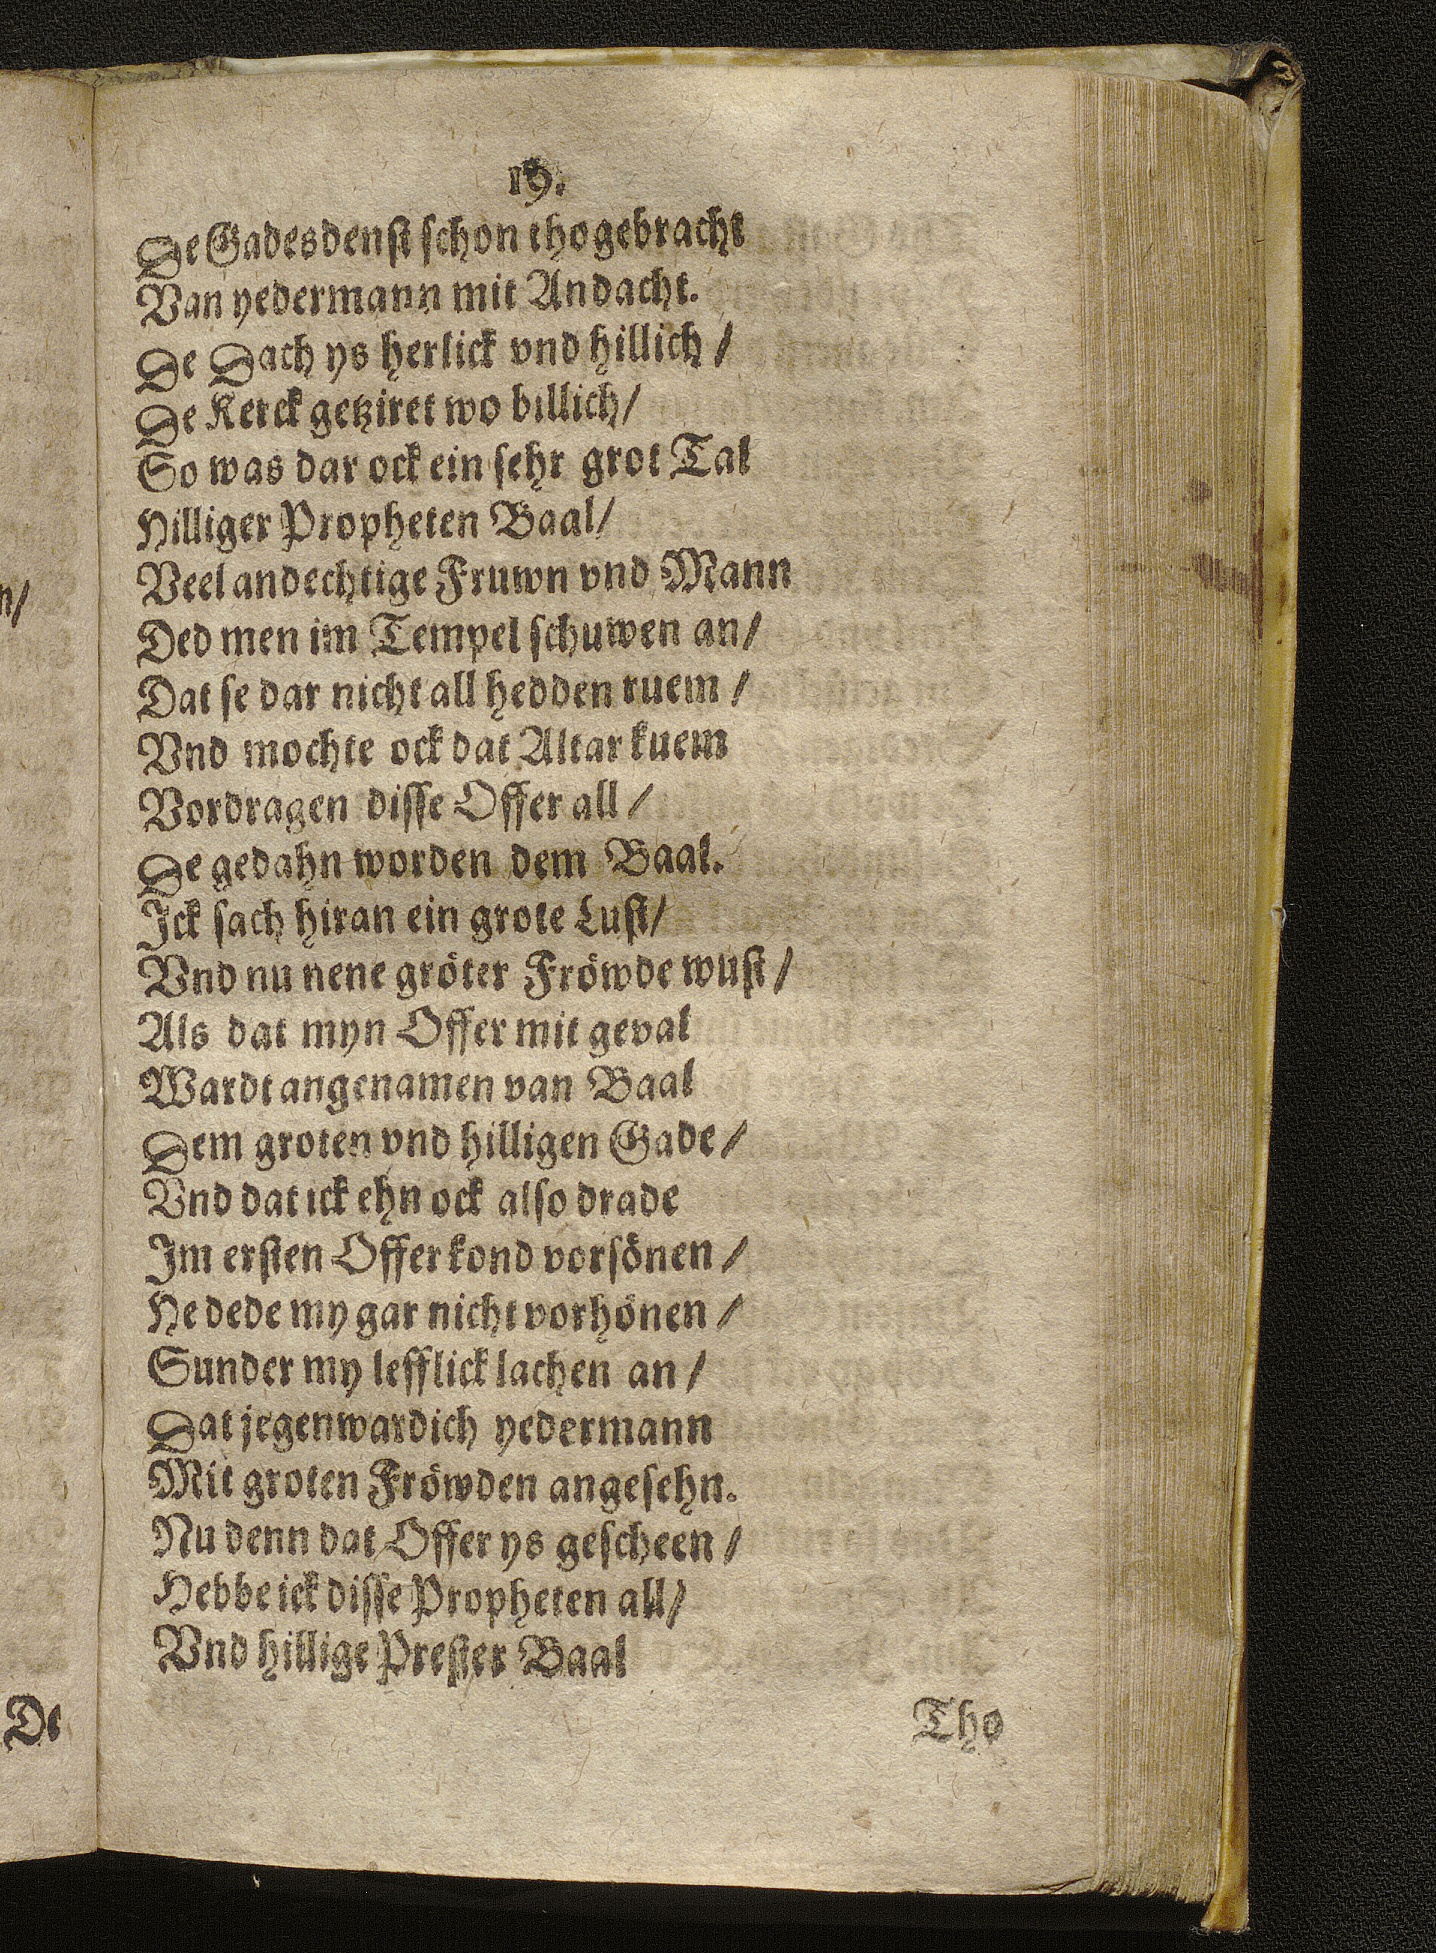 19.
De Gadesdenst schon thogebracht
Van yedermann mit Andacht.
De Dach ys herlick vnd hillich /
De Kerck getziret wo billich/
So was dar ock ein sehr grot Tal
Hilliger Propheten Baal/
Veel andechtige Fruwn vnd Mann
Ded men im Tempel schuwen an/
Dat se dar nicht all hedden ruem /
Vnd mochte ock dat Altar kuem
Vordragen disse Offer all /
De gedahn worden dem Baal.
Ick sach hiran ein grote Lust/
Vnd nu nene gröter Fröwde wust /
Als dat myn Offer mit geval
Wardt angenamen van Baal
Dem groten vnd hilligen Gade /
Vnd dat ick ehn ock also drade
Im ersten Offer kond vorsönen /
He dede my gar nicht vorhönen /
Sunder my lefflick lachen an /
Dat jegenwardich yedermann
Mit groten Fröwden angesehn.
Nu denn dat Offer ys gescheen /
Hebbe ick disse Propheten all/
Vnd hillige Prester Baal
Tho